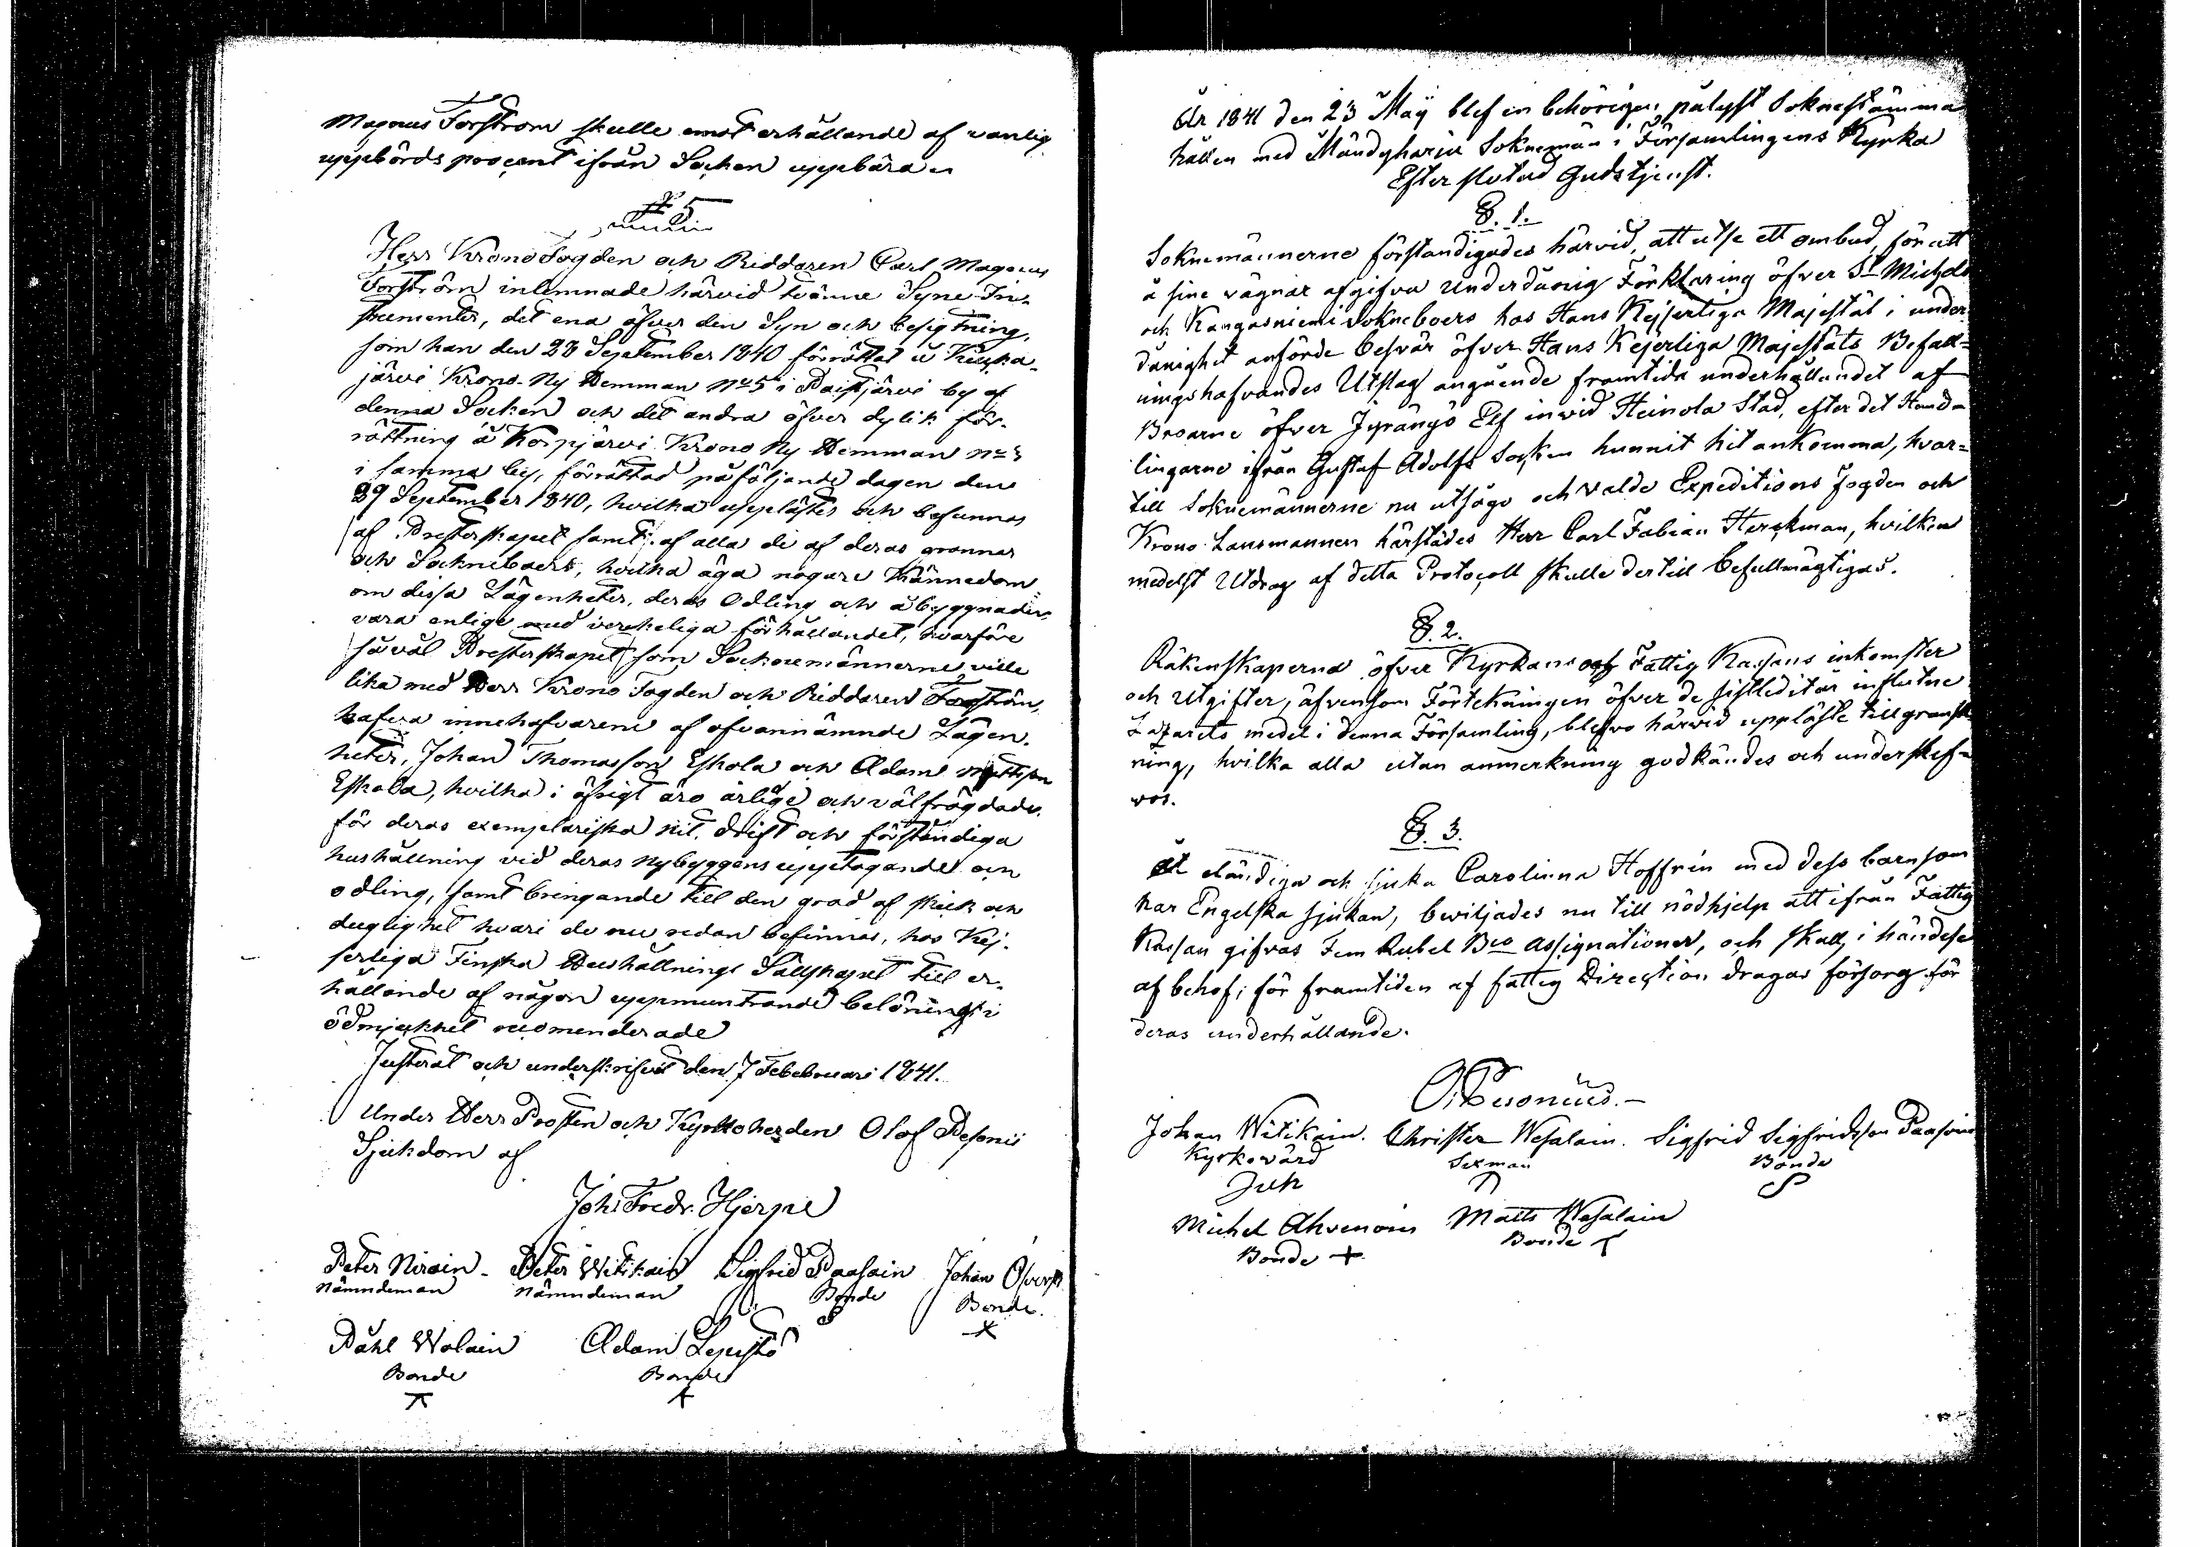 Magnus Forström skulle emot erhållande af vanlig
uppbörds procent ifrån Socken uppbära.
§ 5
Herr Krono Fogden och Riddaren Carl Magnus
Forström inlemnade härvid tvänne Syne In-
strumenter, det ena öfver den Syn och besigtning,
som han den 28 September 1840 förrättat å
järvi Krono-Ny Hemman No 5 i Paistjärvi by af
denna Socken och det andra öfver dylik för-
rättning å Korpjärvi Krono Ny Hemman No
i samma by, förrättad påföljande dagen den
29 September 1840, hvilka upplästes och befunnos
af Presterskapet samt af alla de af deras grannar
och Sockneboers, hvilka äga nogare kännedom
om dessa Lägenheter, deras Odling och åbyggnader
vara enlige med verkeliga förhållandet, hvarföre
såväl Presterskapet som Sockenemännerne ville
lika med Herr Krono Fogden och Riddaren Forström,
hafva innehafvarena af ofvannämnde Lägen-
heter, Johan Thomasson Eskola och Adam Mattsson
Eskola, hvilka i öfrigt äro ärlige och välfrägdade,
för deras exemplariska nit, drift och förståndiga
hushållning vid deras nybyggens upptagande och
odling, samt bringande till den grad af skick och
duglighet hvari de nu redan befinnas, hos Kej-
serliga Finska Hushållnings Sällskapet till er-
hållande af någon uppmuntrande belöning i
ödmjukhet recomenderade
Justerat och underskrifvit den 7 Febebruari 1841.
Under Herr Prosten och Kyrkoherden Olof Pesonii
Sjukdom af
Joh: Fredr. Hjerpe
Peter Nirain- Peter Witikain Sigfrid Paasoin Johan
Nämndeman Nämndeman Bonde Bonde.
Påhl Wolain Adam Lepistö
Bonde Bonde
År 1841 den 23 Maÿ blef en behörigen pålyst Soknestämma
hållen med Mändyharju Soknemän i Församlingens Kyrka
Efter slutad Gudstjenst.
§. 1.
Soknemännerne förständigades härvid, att utse ett ombud, för att
å sine vägnar afgifva underdånig Förklaring öfver St Michels
och Kangasniemi Sokneboers hos Hans Kejserliga Majestät i under-
dånighet anförde besvär öfver Hans Kejserliga Majestäts Befall-
ningshafvandes Utslag angående framtida underhållandet af
Broarne öfver Jyrängö Elf invid Heinola Stad, efter det Hand-
lingarne ifrån Gustaf Adolfs Socken hunnit hit ankomma, hvar-
till Soknemännerne nu utsågo och valde Expeditions Fogden och
Krono-Länsmannen härstädes Herr Carl Fabian Herckman, hvilken
medelst Utdrag af detta Protocoll skulle dertill befullmägtigas.
§. 2.
Räkenskaperna öfver Kyrkans och Fattig Kassans inkomster
och Utgifter, äfvensom Förtekningen öfver de sistledit år influtne
Lazarets medel i denna Församling, blefvo härvid uppläste till gransk-
ning, hvilka alla utan anmerkning godkändes och underskref-
vos.
§. 3.
Åt eländiga och sjuka Carolinna Hoffrén med dess barn som
har Engelska sjukan, bewiljades nu till nödhjelp att ifrån Fattig
Kassan gifvas Fem Rubel Bco Assignationer, och skall, i händelse
af behof, för framtiden af fattig Direction dragas försorg för
deras underhållande.
O: Pesonius.-
Johan Witikain. Christer Wesalain. Sigfrid Sigfridsson Paasoin
Kyrkovärd Sexman Bonde
Michel Ahvenain Matts Wesalain
Bonde + Bonde